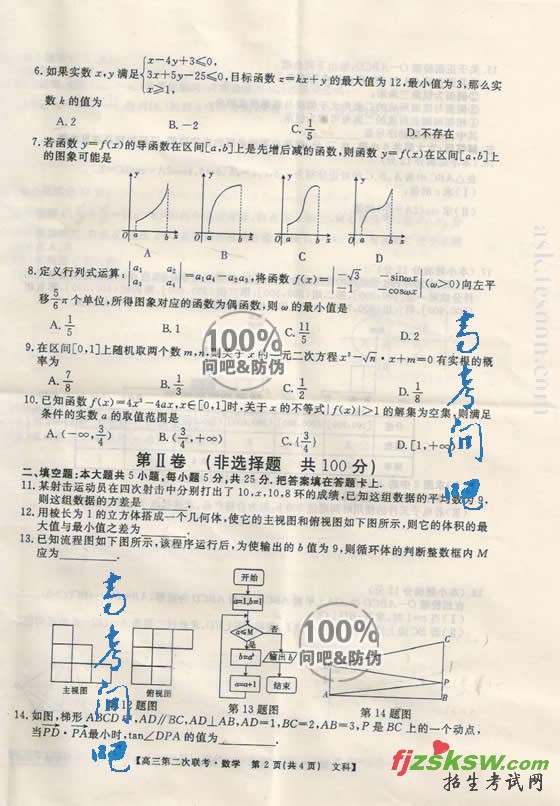 x-4y+3≤0,
6. 如果实数 x,y 满足 3x+5y-25≤0, 目标函数 z=kx+y 的最大值为 12,最小值为 3,那么实
x≥1,
数 k 的值为
A. 2 B. -2 C. 1/5 D. 不存在
7. 若函数 y=f(x)的导函数在区间[a,b]上是先增后减的函数,则函数 y=f(x)在区间[a,b]上
的图象可能是
y y y y
O a b x O a b x O a b x O a b x
A B C D
8. 定义行列式运算: |a₁ a₂; a₃ a₄| =a₁a₄-a₂a₃,将函数 f(x)= |-√3 -sinωx; -1 -cosωx| (ω>0)向左平
移 5/6 π 个单位,所得图象对应的函数为偶函数,则 ω 的最小值是
A. 1/5 B. 1 C. 11/5 D. 2
9. 在区间[0,1]上随机取两个数 m,n,则关于 x 的一元二次方程 x²-√n·x+m=0 有实根的概
率为
A. 7/8 B. 1/3 C. 1/2 D. 1/8
10. 已知函数 f(x)=4x³-4ax,x∈[0,1]时,关于 x 的不等式|f(x)|>1 的解集为空集,则满足
条件的实数 a 的取值范围是
A. (-∞,3/4) B. (3/4,+∞) C. {3/4} D. [1,+∞)
第Ⅱ卷 (非选择题 共 100 分)
二、填空题:本大题共 5 小题,每小题 5 分,共 25 分. 把答案填在答题卡上.
11. 某射击运动员在四次射击中分别打出了 10,x,10,8 环的成绩,已知这组数据的平均数为 9,
则这组数据的方差是
12. 用棱长为 1 的立方体搭成一个几何体,使它的主视图和俯视图如下图所示,则它的体积的最
大值与最小值之差为
13. 已知流程图如下图所示,该程序运行后,为使输出的 b 值为 9,则循环体的判断整数框内 M
应为
开始
a=1,b=1
a≤M 否
是
b=aᵇ 输出 b
a=a+1 结束
C
D
P
A B
主视图 俯视图
第 12 题图 第 13 题图 第 14 题图
14. 如图,梯形 ABCD 中,AD∥BC,AD⊥AB,AD=1,BC=2,AB=3,P 是 BC 上的一个动点,
当PD·PA最小时,tan∠DPA 的值为
【高三第二次联考·数学 第 2 页(共 4 页) 文科】
100%
问吧&防伪
100%
问吧&防伪
高考问吧
高考问吧
fjzsksw.com
招生考试网